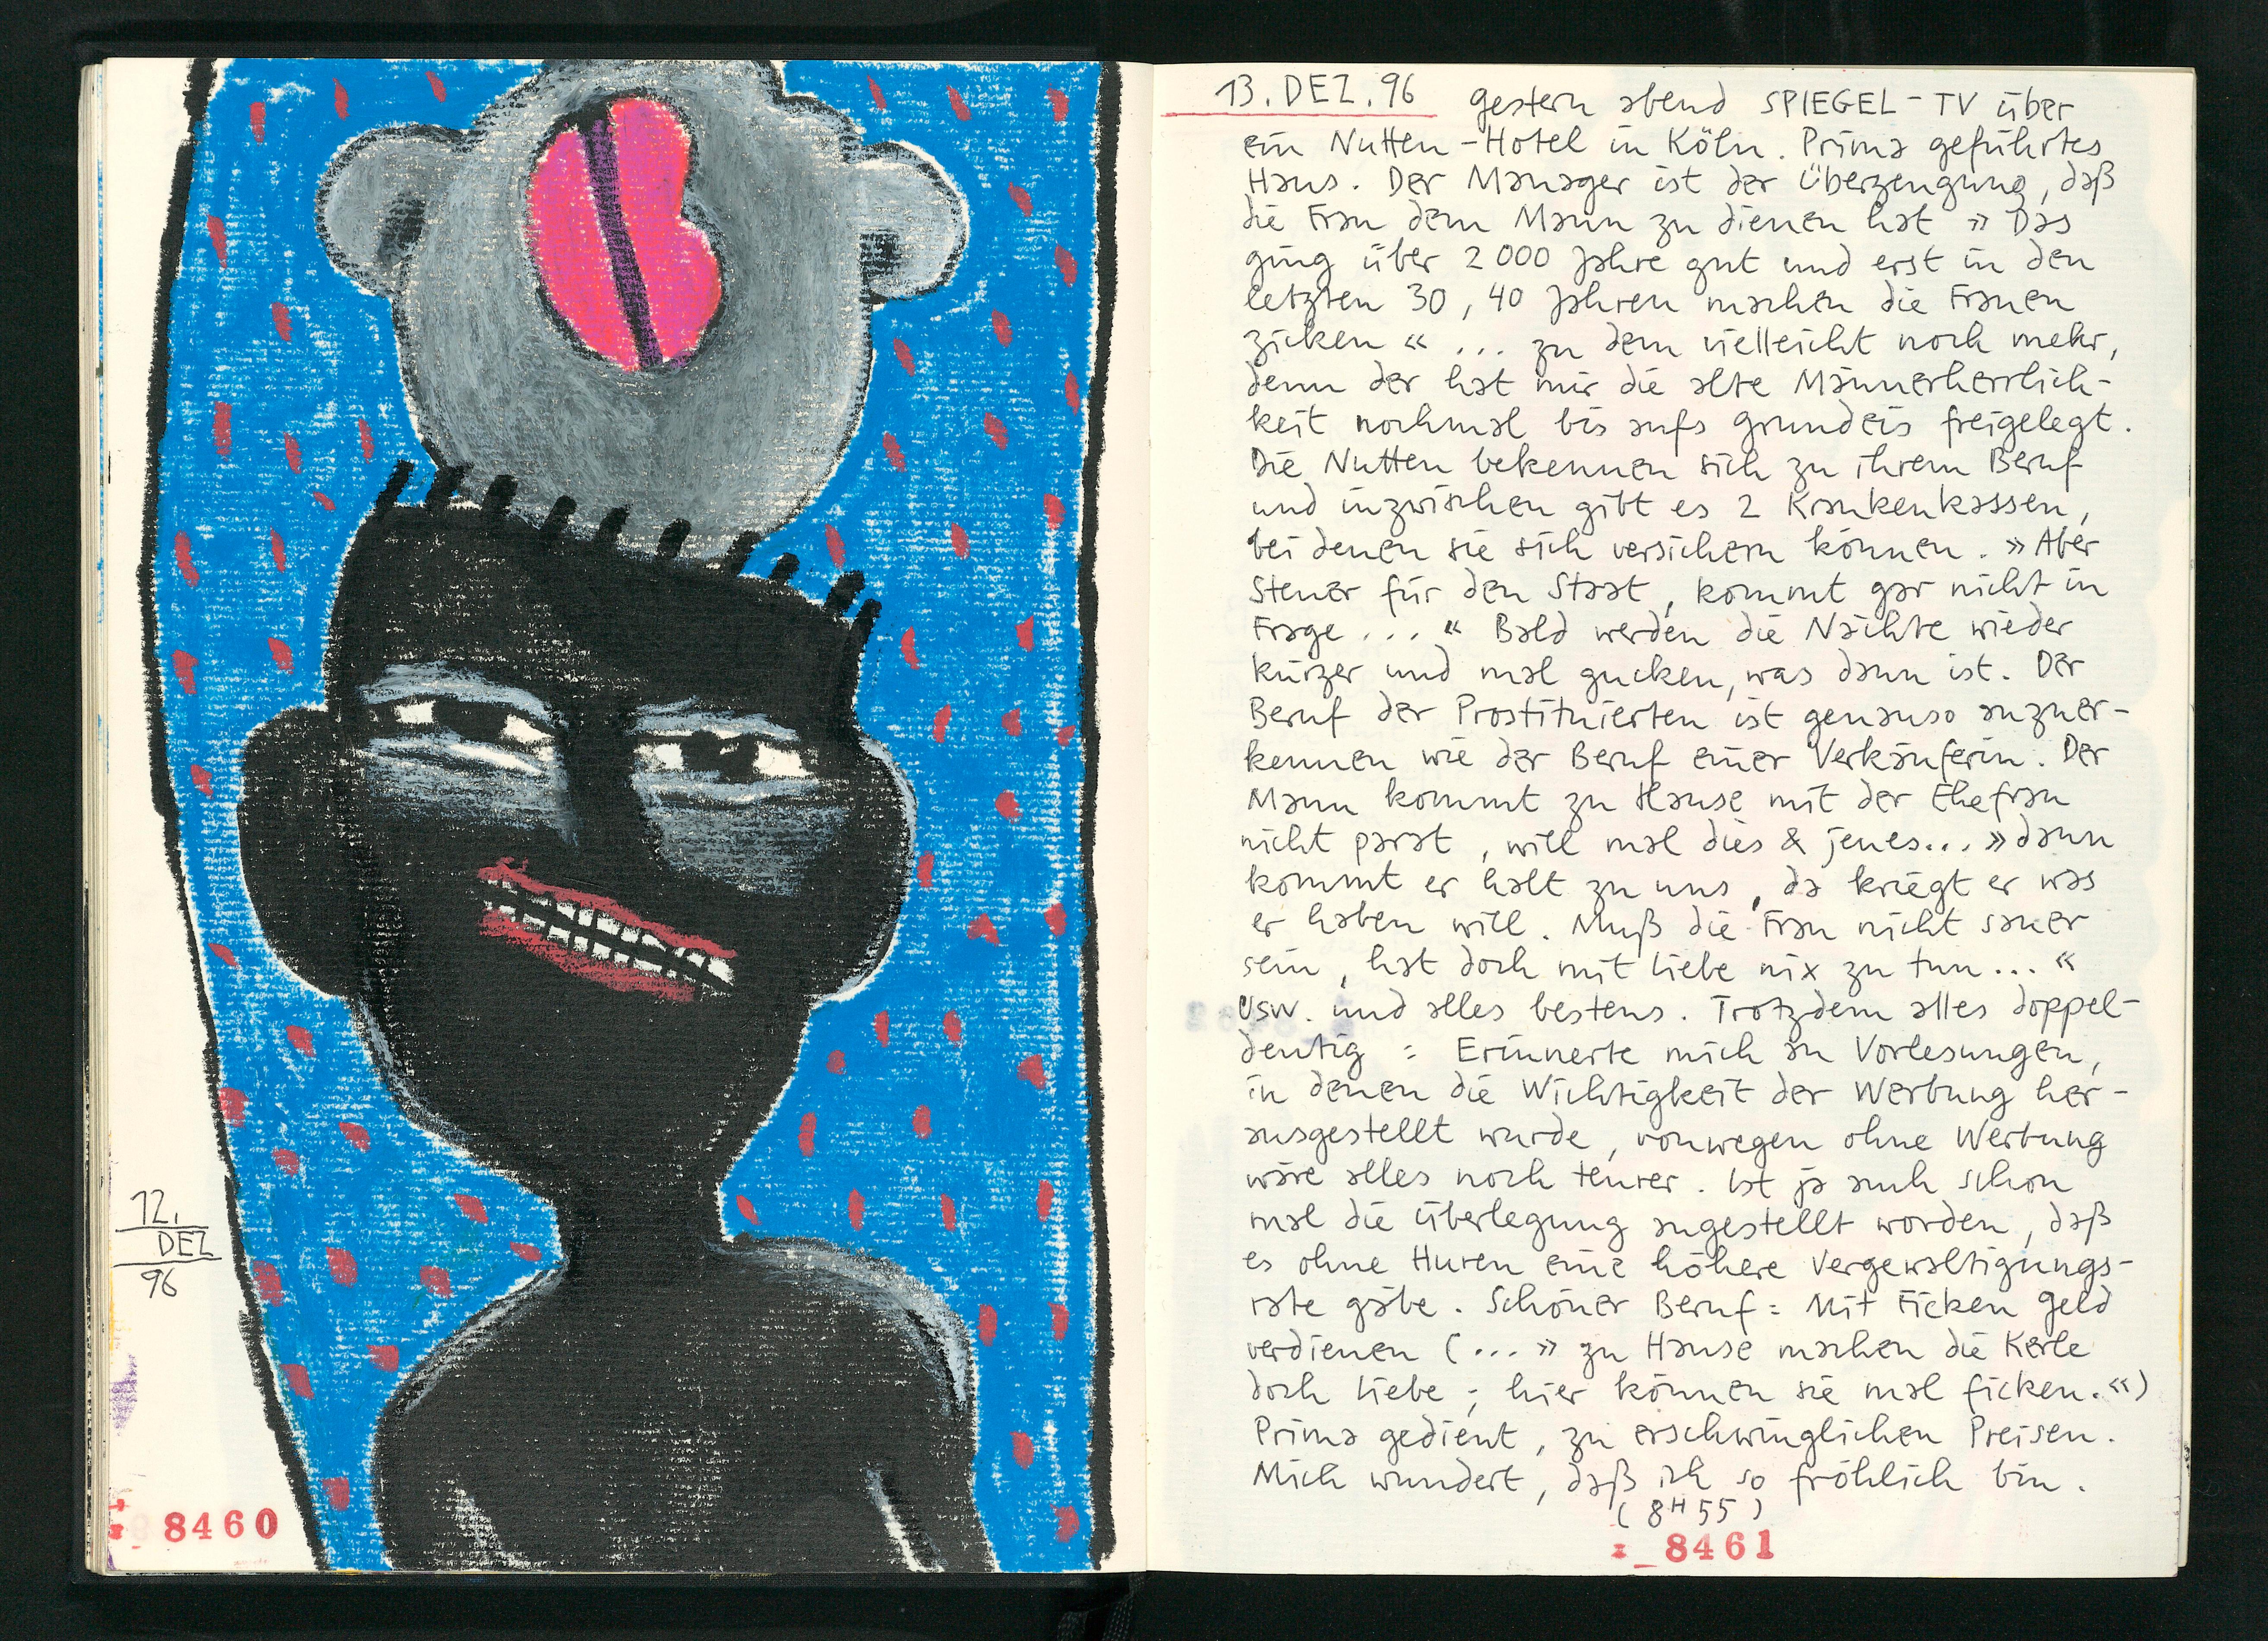 12.
DEZ
96
8460
13. DEZ. 96 gestern abend SPIEGEL-TV über
ein Nutten-Hotel in Köln. Prima geführtes
Haus. Der Manager ist der Überzeugung, daß
die Frau dem Mann zu dienen hat » Das
ging über 2000 Jahre gut und erst in den
letzten 30, 40 Jahren machen die Frauen
zicken « ... zu dem vielleicht noch mehr,
denn der hat mir die alte Männerherrlich-
keit nochmal bis aufs Grundeis freigelegt.
Die Nutten bekennen sich zu ihrem Beruf
und inzwischen gibt es 2 Krankenkassen,
bei denen sie sich versichern können. » Aber
Steuer für den Staat, kommt gar nicht in
Frage ... « Bald werden die Nächte wieder
kürzer und mal gucken, was dann ist. Der
Beruf der Prostituierten ist genauso anzuer-
kennen wie der Beruf einer Verkäuferin. Der
Mann kommt zu Hause mit der Ehefrau
nicht parat, will mal dies & jenes... » dann
kommt er halt zu uns, da kriegt er was
er haben will. Muß die Frau nicht sauer
sein, hat doch mit Liebe nix zu tun ... «
usw. und alles bestens. Trotzdem alles doppel-
deutig : Erinnerte mich an Vorlesungen,
in denen die Wichtigkeit der Werbung her-
ausgestellt wurde, vonwegen ohne Werbung
wäre alles noch teurer. Ist ja auch schon
mal die Überlegung angestellt worden, daß
es ohne Huren eine höhere Vergewaltigungs-
rate gäbe. Schöner Beruf : Mit Ficken Geld
verdienen (... » zu Hause machen die Kerle
doch Liebe ; hier können sie mal ficken. «)
Prima gedient, zu erschwinglichen Preisen.
Mich wundert, daß ich so fröhlich bin.
(8H55)
8461